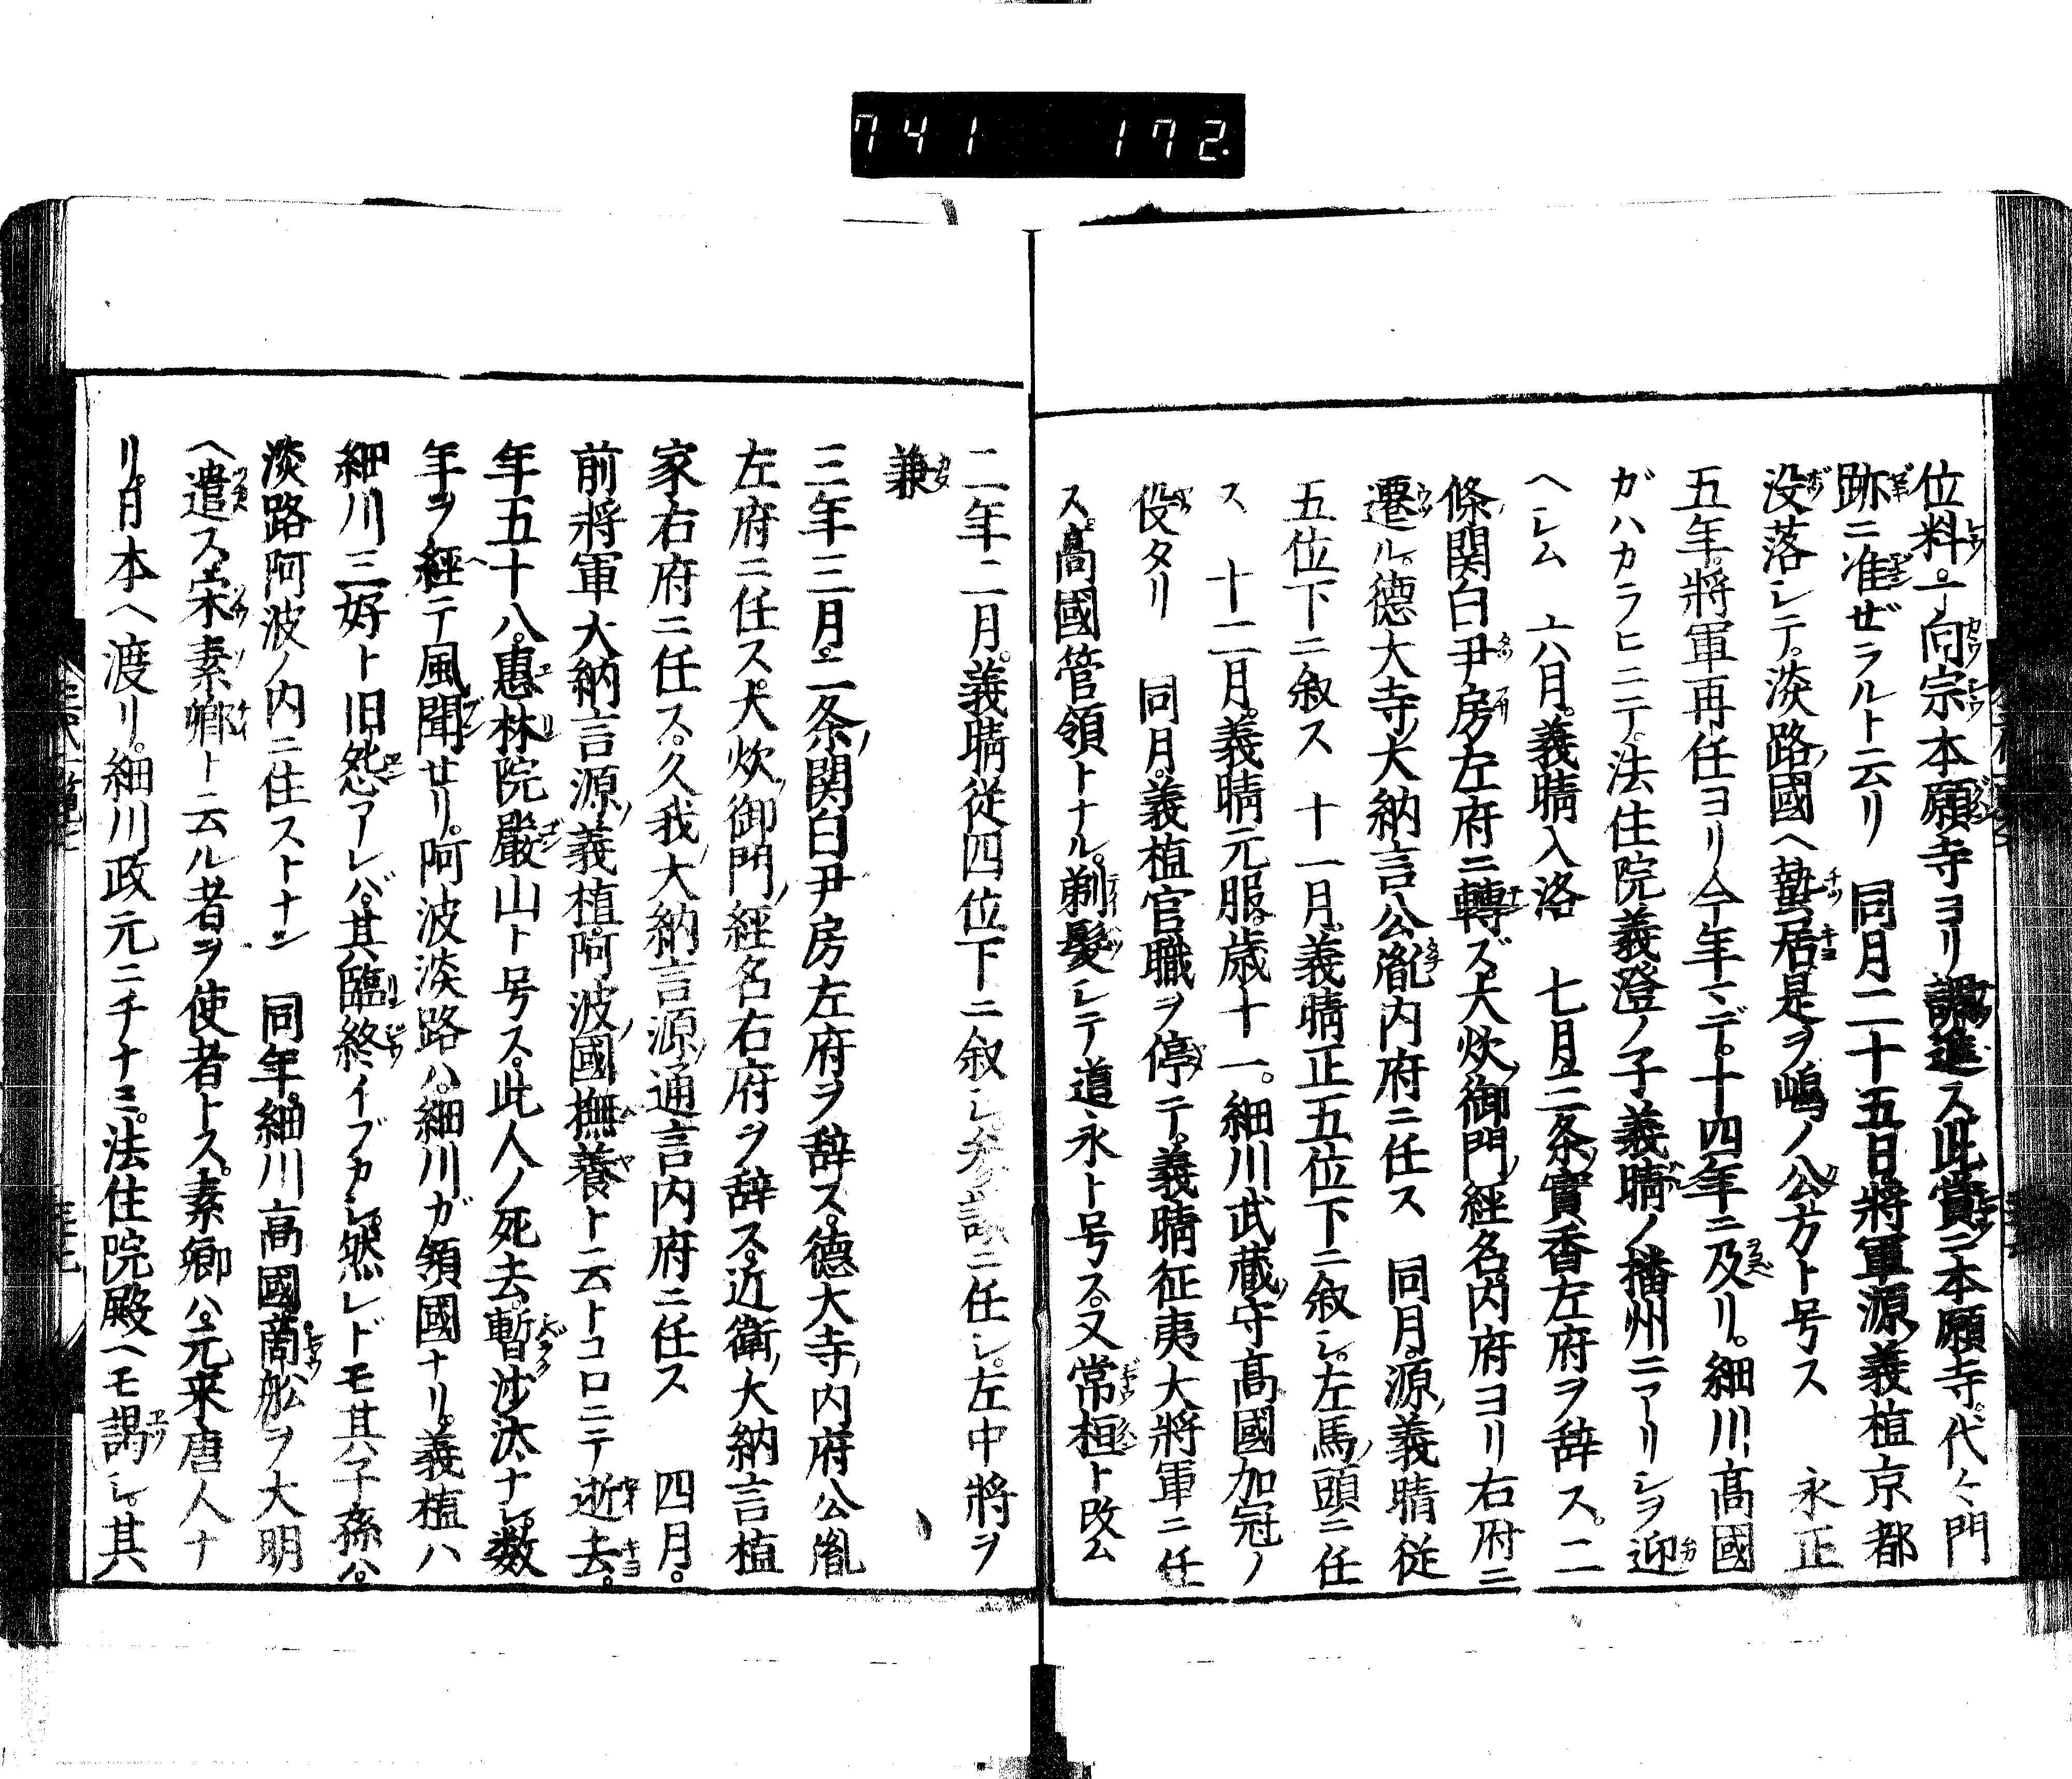 741 172.
位料。一向宗本願寺ヨリ調進ス此賞ニ本願寺。代々門
跡ニ准ゼラルト云リ 同月二十五日將軍源義植京都
没落シテ。淡路國ヘ蟄居是ヲ嶋ノ公方ト号ス 永正
五年。將軍再任ヨリ今年マデ。十四年ニ及リ。細川高國
ガハカラヒニテ。法住院義澄ノ子義晴ノ播州ニアリシヲ迎
ヘシム 六月。義晴入洛 七月。三条實香左府ヲ辞ス。二
條関白尹房左府ニ轉ズ。大炊御門經名内府ヨリ右府ニ
遷ル。德大寺大納言公胤内府ニ任ス 同月。源義晴從
五位下ニ叙ス 十一月。義晴正五位下ニ叙シ。左馬頭ニ任
ス 十二月。義晴元服。歳十一。細川武蔵守高國加冠ノ
役タリ 同月。義植官職ヲ停テ。義晴征夷大將軍ニ任
ス。高國管領トナル。剃髪シテ道永ト号ス。又常桓ト改ム
二年二月。義晴從四位下ニ叙シ。参議ニ任シ。左中將ヲ
兼
三年三月。二条関白尹房左府ヲ辞ス。德大寺内府公胤
左府ニ任ス。大炊御門經名右府ヲ辞ス。近衛大納言植
家右府ニ任ス。久我大納言源通言内府ニ任ス 四月。
前將軍大納言源義植。阿波國撫養ト云トコロニテ逝去。
年五十八。惠林院嚴山ト号ス。此人ノ死去。暫沙汰ナシ。数
年ヲ經テ風聞セリ。阿波淡路ハ。細川ガ領國ナリ。義植ハ
細川三好ト旧怨アレバ。其臨終イブカシ。然レドモ其子孫ハ。
淡路阿波ノ内ニ住ストナン 同年。細川高國商舩ヲ大明
ヘ遣ス。宋素卿ト云ル者ヲ使者トス。素卿ハ。元来唐人ナ
リ。日本ヘ渡リ。細川政元ニチナミ。法住院殿ヘモ謁シ。其